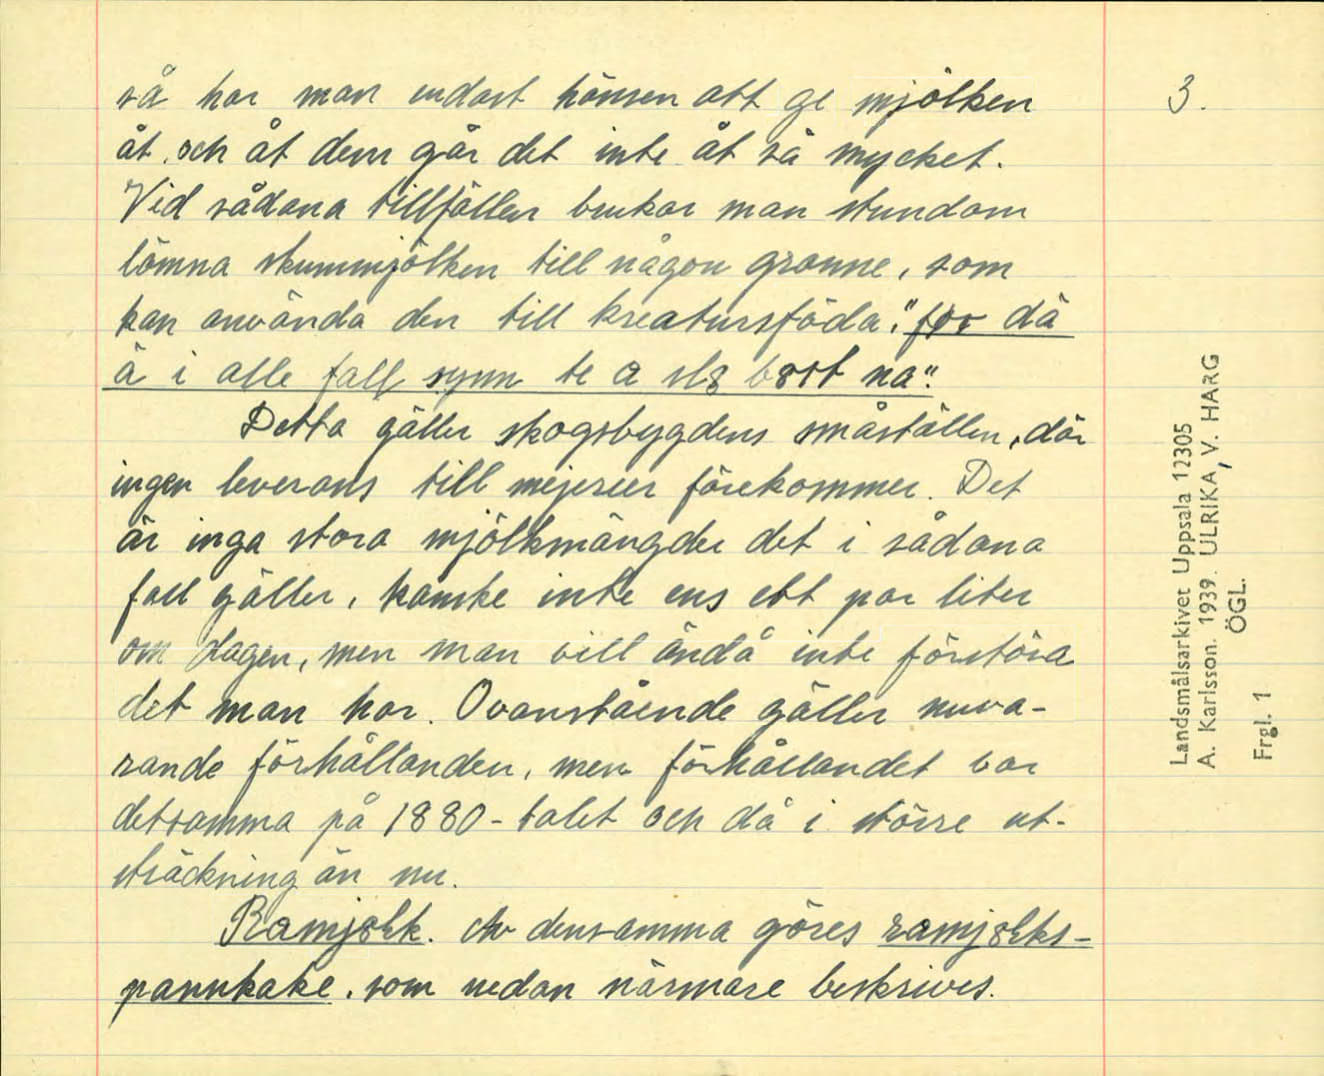 3.
så har man endast hönsen att ge mjölken
åt, och åt dem går det inte åt så mycket.
Vid sådana tillfällen brukar man stundom
lämna skummjölken till någon granne, som
kan använda den till kreatursföda, "for dä
ä i alle fall synn te a sls bort na".
Detta gäller skogsbygdens småställen, där
ingen leverans till mejerier förekommer. Det
är inga stora mjölkmängder det i sådana
fall gäller, kanske inte ens ett par liter
om dagen, men man vill ändå inte förstöra
det man har. Ovanstående gäller nuva-
rande förhållanden, men förhållandet var
detsamma på 1880-talet och då i större ut-
sträckning än nu.
Ramjölk. Av densamma göres ramjölks-
pannkake, som nedan närmare beskrives.
Landsmålsarkivet Uppsala 12305
A. Karlsson. 1939. ULRIKA, V. HARG
ÖGL.
Frgl. 1